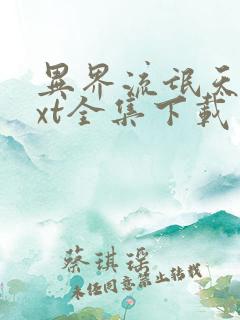 異界流氓天
xt全集下載
蔡琪瑶
未任同意禁止转载